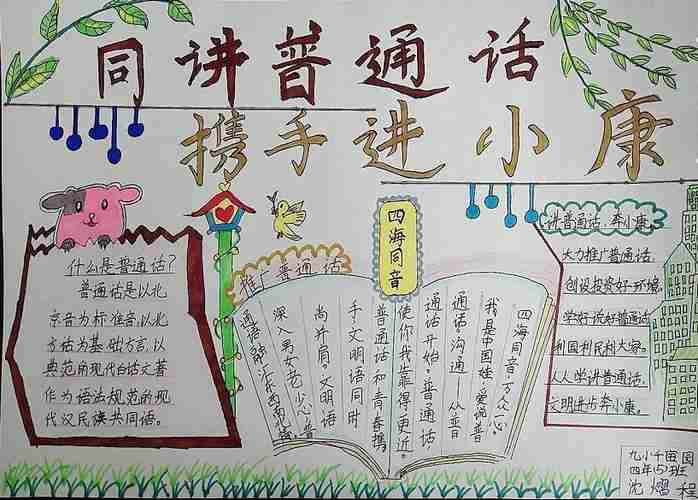 同讲普通话
携手进小康
什么是普通话?
普通话是以北
京音为标准音,以北
方话为基础方言,以
典范的现代白话文著
作为语法规范的现
代汉民族共同语。
推广普通话
四海同音
四海同音,万众一心。
我是中国娃,爱说普
通话沟通——从普
通话开始。普通话
使你我靠得更近。
普通话和青春携
手文明语同时
尚并肩。文明语
深入男女老少心普
通话
讲普通话,奔小康。
大力推广普通话
创设投资好环境。
学好说好普通话
利国利民利大家。
人人学讲普通话
文明进步奔小康。
九小
四年(5)班
沈熠